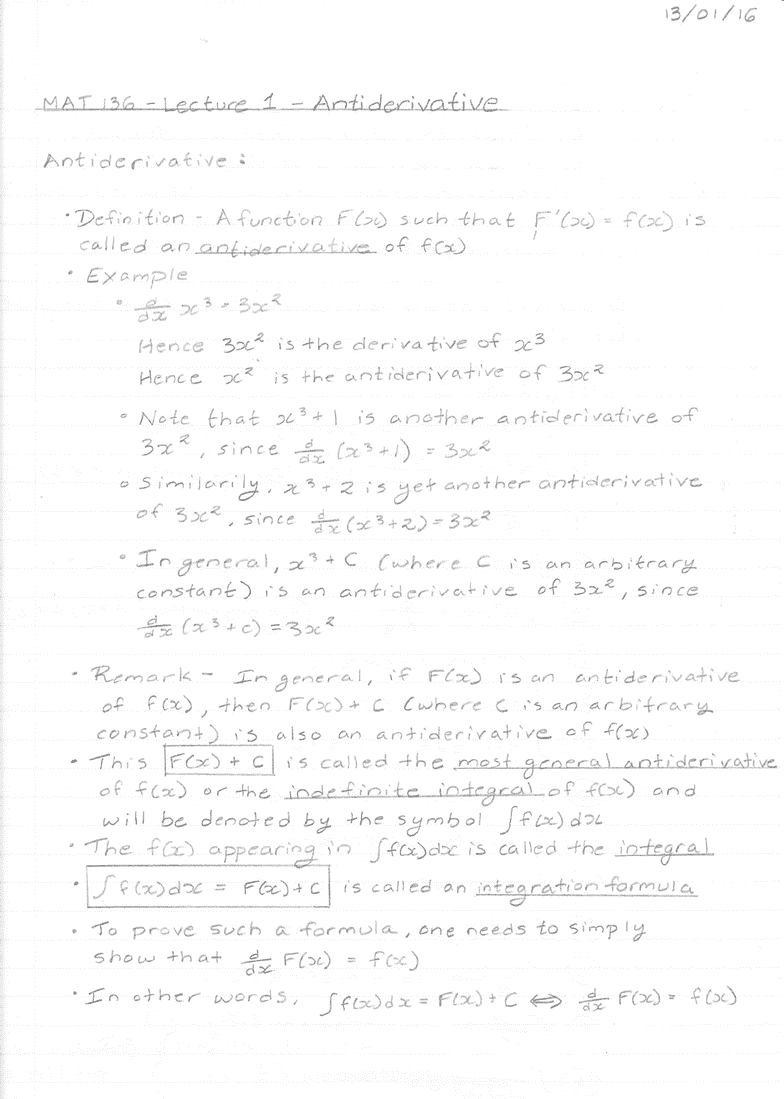 13/01/16
MAT 136 - Lecture 1 - Antiderivative
Antiderivative :
• Definition - A function F(x) such that F'(x) = f(x) is
called an antiderivative of f(x)
• Example
• d/dx x³ = 3x²
Hence 3x² is the derivative of x³
Hence x² is the antiderivative of 3x²
• Note that x³+1 is another antiderivative of
3x², since d/dx (x³+1) = 3x²
• Similarily, x³+2 is yet another antiderivative
of 3x², since d/dx (x³+2) = 3x²
• In general, x³ + C (where C is an arbitrary
constant) is an antiderivative of 3x², since
d/dx (x³+c) = 3x²
• Remark - In general, if F(x) is an antiderivative
of f(x), then F(x) + C (where C is an arbitrary
constant) is also an antiderivative of f(x)
• This F(x) + C is called the most general antiderivative
of f(x) or the indefinite integral of f(x) and
will be denoted by the symbol ∫f(x)dx
• The f(x) appearing in ∫f(x)dx is called the integral
• ∫f(x)dx = F(x)+C is called an integration formula
• To prove such a formula, one needs to simply
show that d/dx F(x) = f(x)
• In other words, ∫f(x)dx = F(x) + C ⇔ d/dx F(x) = f(x)